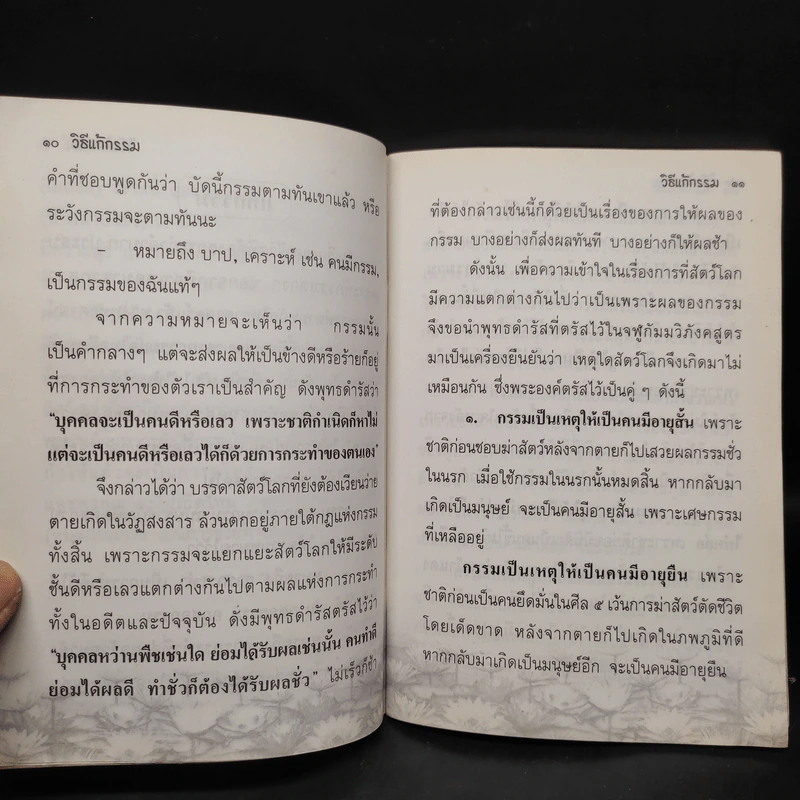 ๑๐ วิธีแก้กรรม
คำที่ชอบพูดกันว่า บัดนี้กรรมตามทันเขาแล้ว หรือ
ระวังกรรมจะตามทันนะ
– หมายถึง บาป, เคราะห์ เช่น คนมีกรรม,
เป็นกรรมของฉันแท้ๆ
จากความหมายจะเห็นว่า กรรมนั้น
เป็นคำกลางๆ แต่จะส่งผลให้เป็นข้างดีหรือร้ายก็อยู่
ที่การกระทำของตัวเราเป็นสำคัญ ดังพุทธดำรัสว่า
“บุคคลจะเป็นคนดีหรือเลว เพราะชาติกำเนิดก็หาไม่
แต่จะเป็นคนดีหรือเลวได้ก็ด้วยการกระทำของตนเอง”
จึงกล่าวได้ว่า บรรดาสัตว์โลกที่ยังต้องเวียนว่าย
ตายเกิดในวัฏสงสาร ล้วนตกอยู่ภายใต้กฎแห่งกรรม
ทั้งสิ้น เพราะกรรมจะแยกแยะสัตว์โลกให้มีระดับ
ชั้นดีหรือเลวแตกต่างกันไปตามผลแห่งการกระทำ
ทั้งในอดีตและปัจจุบัน ดังมีพุทธดำรัสตรัสไว้ว่า
“บุคคลหว่านพืชเช่นใด ย่อมได้รับผลเช่นนั้น คนทำดี
ย่อมได้ผลดี ทำชั่วก็ต้องได้รับผลชั่ว” ไม่เร็วก็ช้า
วิธีแก้กรรม ๑๑
ที่ต้องกล่าวเช่นนี้ก็ด้วยเป็นเรื่องของการให้ผลของ
กรรม บางอย่างก็ส่งผลทันที บางอย่างก็ให้ผลช้า
ดังนั้น เพื่อความเข้าใจในเรื่องการที่สัตว์โลก
มีความแตกต่างกันไปว่าเป็นเพราะผลของกรรม
จึงขอนำพุทธดำรัสที่ตรัสไว้ในจูฬกัมมวิภังคสูตร
มาเป็นเครื่องยืนยันว่า เหตุใดสัตว์โลกจึงเกิดมาไม่
เหมือนกัน ซึ่งพระองค์ตรัสไว้เป็นคู่ ๆ ดังนี้
๑. กรรมเป็นเหตุให้เป็นคนมีอายุสั้น เพราะ
ชาติก่อนชอบฆ่าสัตว์หลังจากตายก็ไปเสวยผลกรรมชั่ว
ในนรก เมื่อใช้กรรมในนรกนั้นหมดสิ้น หากกลับมา
เกิดเป็นมนุษย์ จะเป็นคนมีอายุสั้น เพราะเศษกรรม
ที่เหลืออยู่
กรรมเป็นเหตุให้เป็นคนมีอายุยืน เพราะ
ชาติก่อนเป็นคนยึดมั่นในศีล ๕ เว้นการฆ่าสัตว์ตัดชีวิต
โดยเด็ดขาด หลังจากตายก็ไปเกิดในภพภูมิที่ดี
หากกลับมาเกิดเป็นมนุษย์อีก จะเป็นคนมีอายุยืน